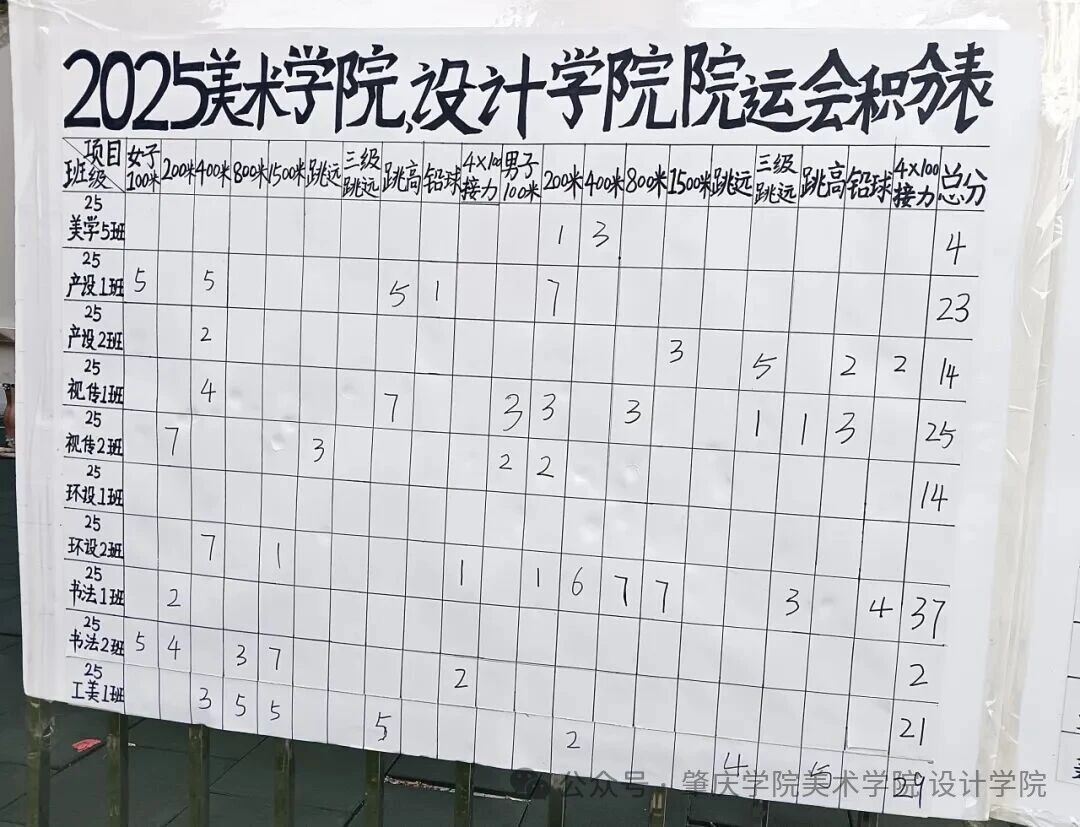 2025美术学院、设计学院院运会积分表
项目
班级
女子100米 200米 400米 800米 1500米 跳远 三级跳远 跳高 铅球 4×100接力 男子100米 200米 400米 800米 1500米 跳远 三级跳远 跳高 铅球 4×100接力 总分
25
美学5班 1 3 4
25
产设1班 5 5 5 1 7 23
25
产设2班 2 3 5 2 2 14
25
视传1班 4 7 3 3 3 1 1 3 25
25
视传2班 7 3 2 2 14
25
环设1班
25
环设2班 7 1 1 1 6 7 7 3 4 37
25
书法1班 2 2
25
书法2班 5 4 3 7 2 21
25
工美1班 3 5 5 5 2 4 5 29
公众号·肇庆学院美术学院 设计学院